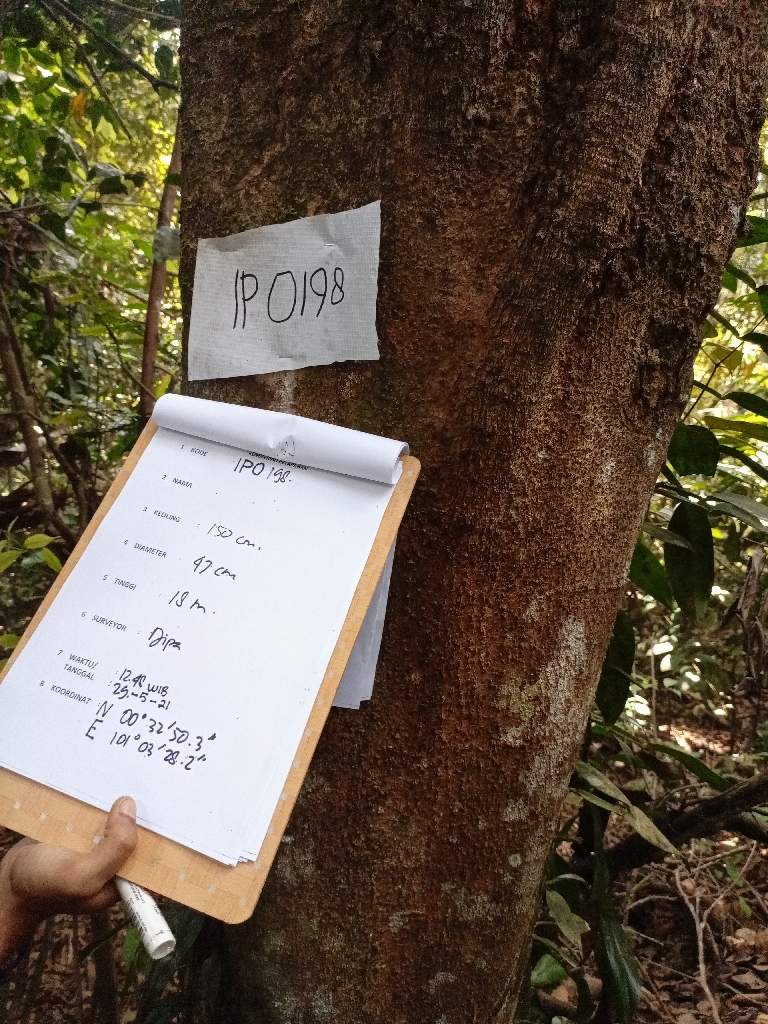 IPO198
1 KODE
IPO198.
2 NAMA
3 KELILING : 150 cm.
4 DIAMETER . 47 cm
5 TINGGI 18 m.
6 SURVEYOR . Dipa
7 WAKTU/ : 12.48 WIB
TANGGAL : 29.-5-21
8 KOORDINAT N 00° 32' 50.3"
E 101° 03' 28.2"